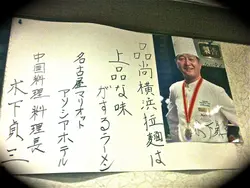 品尚横浜拉麺は
上品な味
がするラーメン
名古屋マリオット
アソシアホテル
中国料理 料理長
木下員三